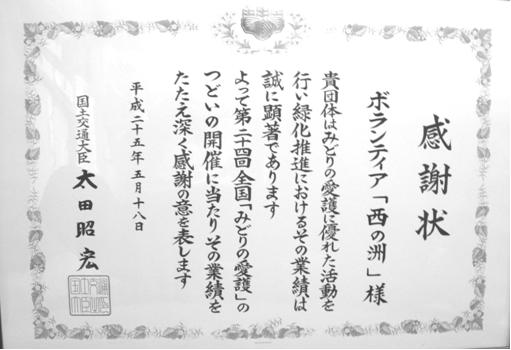 感謝状
ボランティア「西の洲」様
貴団体はみどりの愛護に優れた活動を
行い緑化推進におけるその業績は
誠に顕著であります
よって第二十四回全国「みどりの愛護」の
つどいの開催に当たりその業績を
たたえ深く感謝の意を表します
平成二十五年五月十八日
国土交通大臣 太田昭宏